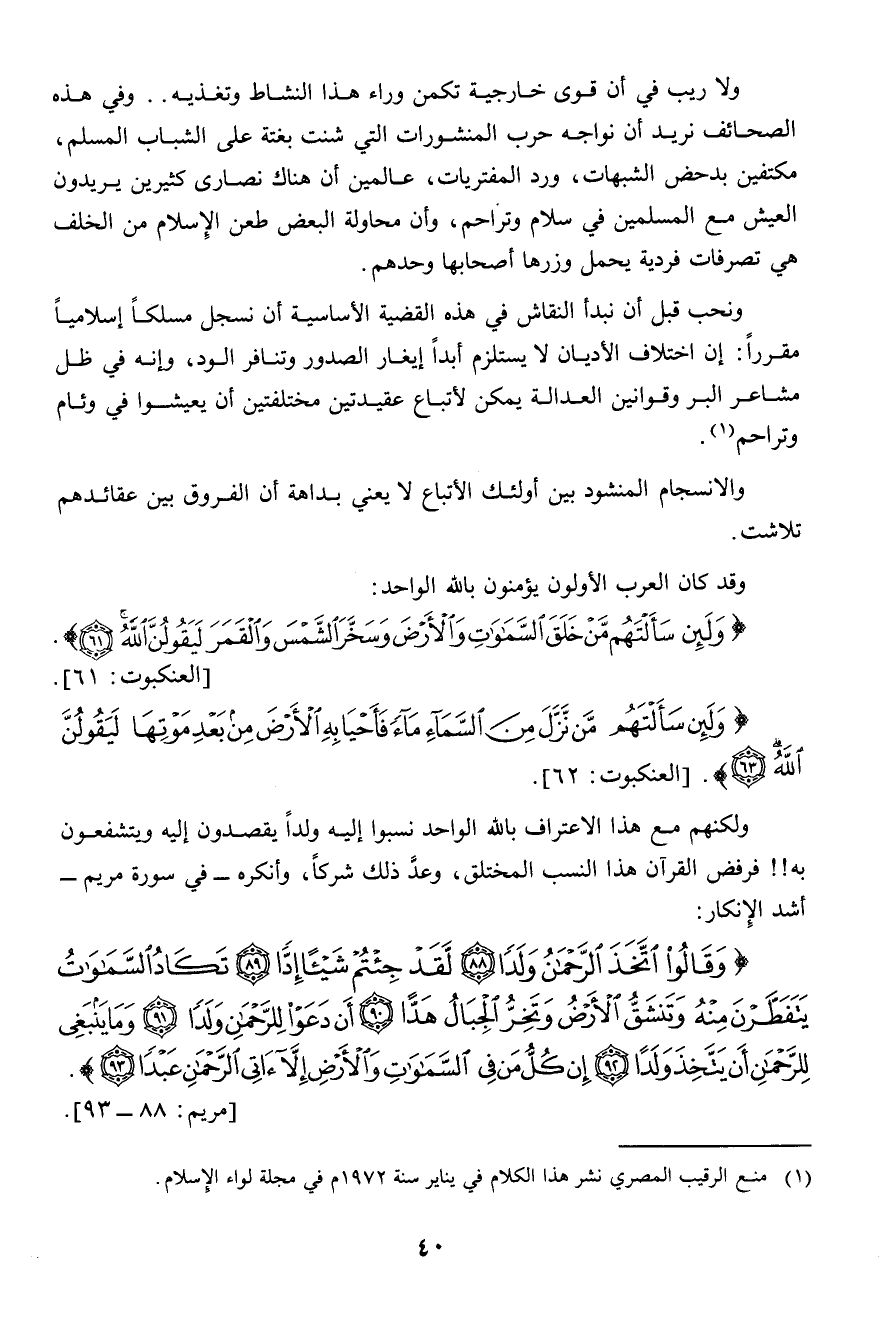 ولا ريب في أن قوى خارجية تكمن وراء هذا النشاط وتغذيه.. وفي هذه
الصحائف نريد أن نواجه حرب المنشورات التي شنت بغتة على الشباب المسلم،
مكتفين بدحض الشبهات، ورد المفتريات، عالمين أن هناك نصارى كثيرين يريدون
العيش مع المسلمين في سلام وتراحم، وأن محاولة البعض طعن الإسلام من الخلف
هي تصرفات فردية يحمل وزرها أصحابها وحدهم.
ونحب قبل أن نبدأ النقاش في هذه القضية الأساسية أن نسجل مسلكاً إسلامياً
مقرراً: إن اختلاف الأديان لا يستلزم أبداً إيغار الصدور وتنافر الود، وإنه في ظل
مشاعر البر وقوانين العدالة يمكن لأتباع عقيدتين مختلفتين أن يعيشوا في وئام
وتراحم(١).
والانسجام المنشود بين أولئك الأتباع لا يعني بداهة أن الفروق بين عقائدهم
تلاشت.
وقد كان العرب الأولون يؤمنون بالله الواحد:
﴿ وَلَئِن سَأَلْتَهُم مَّنْ خَلَقَ ٱلسَّمَٰوَٰتِ وَٱلْأَرْضَ وَسَخَّرَ ٱلشَّمْسَ وَٱلْقَمَرَ لَيَقُولُنَّ ٱللَّهُ ۖ ٦١ ﴾.
[العنكبوت: ٦١].
﴿ وَلَئِن سَأَلْتَهُم مَّن نَّزَّلَ مِنَ ٱلسَّمَآءِ مَآءً فَأَحْيَا بِهِ ٱلْأَرْضَ مِنۢ بَعْدِ مَوْتِهَا لَيَقُولُنَّ
ٱللَّهُ ۚ ٦٣ ﴾. [العنكبوت: ٦٢].
ولكنهم مع هذا الاعتراف بالله الواحد نسبوا إليه ولداً يقصدون إليه ويتشفعون
به!! فرفض القرآن هذا النسب المختلق، وعدَّ ذلك شركاً، وأنكره ــ في سورة مريم ــ
أشد الإنكار:
﴿ وَقَالُوا۟ ٱتَّخَذَ ٱلرَّحْمَٰنُ وَلَدًا ٨٨ لَّقَدْ جِئْتُمْ شَيْـًٔا إِدًّا ٨٩ تَكَادُ ٱلسَّمَٰوَٰتُ
يَتَفَطَّرْنَ مِنْهُ وَتَنشَقُّ ٱلْأَرْضُ وَتَخِرُّ ٱلْجِبَالُ هَدًّا ٩٠ أَن دَعَوْا۟ لِلرَّحْمَٰنِ وَلَدًا ٩١ وَمَا يَنۢبَغِى
لِلرَّحْمَٰنِ أَن يَتَّخِذَ وَلَدًا ٩٢ إِن كُلُّ مَن فِى ٱلسَّمَٰوَٰتِ وَٱلْأَرْضِ إِلَّآ ءَاتِى ٱلرَّحْمَٰنِ عَبْدًا ٩٣ ﴾.
[مريم: ٨٨ ــ ٩٣].
(١) منع الرقيب المصري نشر هذا الكلام في يناير سنة ١٩٧٢م في مجلة لواء الإسلام.
٤٠